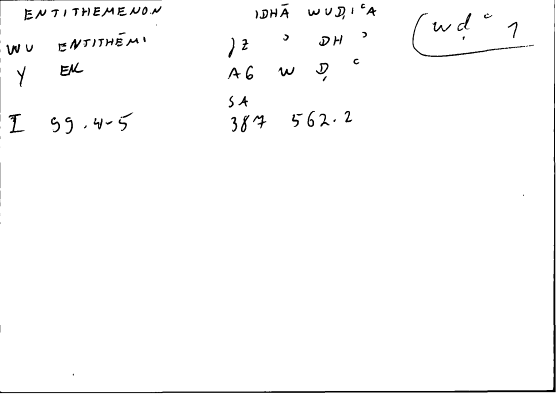 ENTITHEMENON IDHĀ WUḌIʿA (wḍʿ 1
WU ENTITHĒMI JZ ʾ DH ʾ
Y EN AG W Ḍ ʿ
SA
I 99.4-5 387 562.2